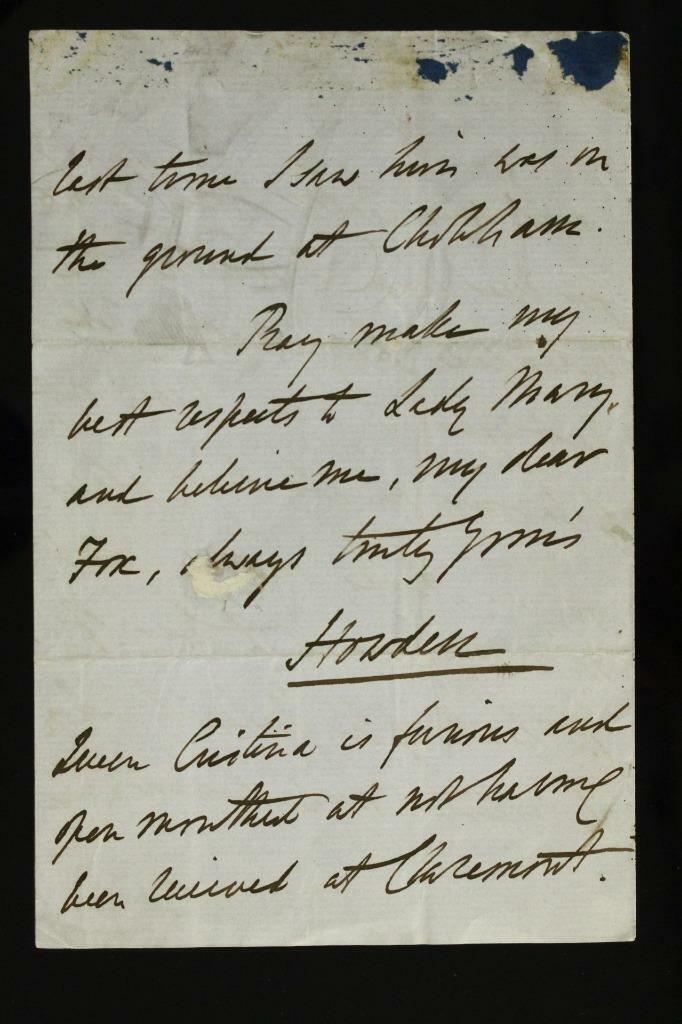 last time I saw him was on
the ground at Chobham.
Pray make my
best respects to Lady Mary,
and believe me, my dear
Fox, always truly Your's
Howden
Queen Cristina is furious and
open mouthed at not having
been received at Claremont.